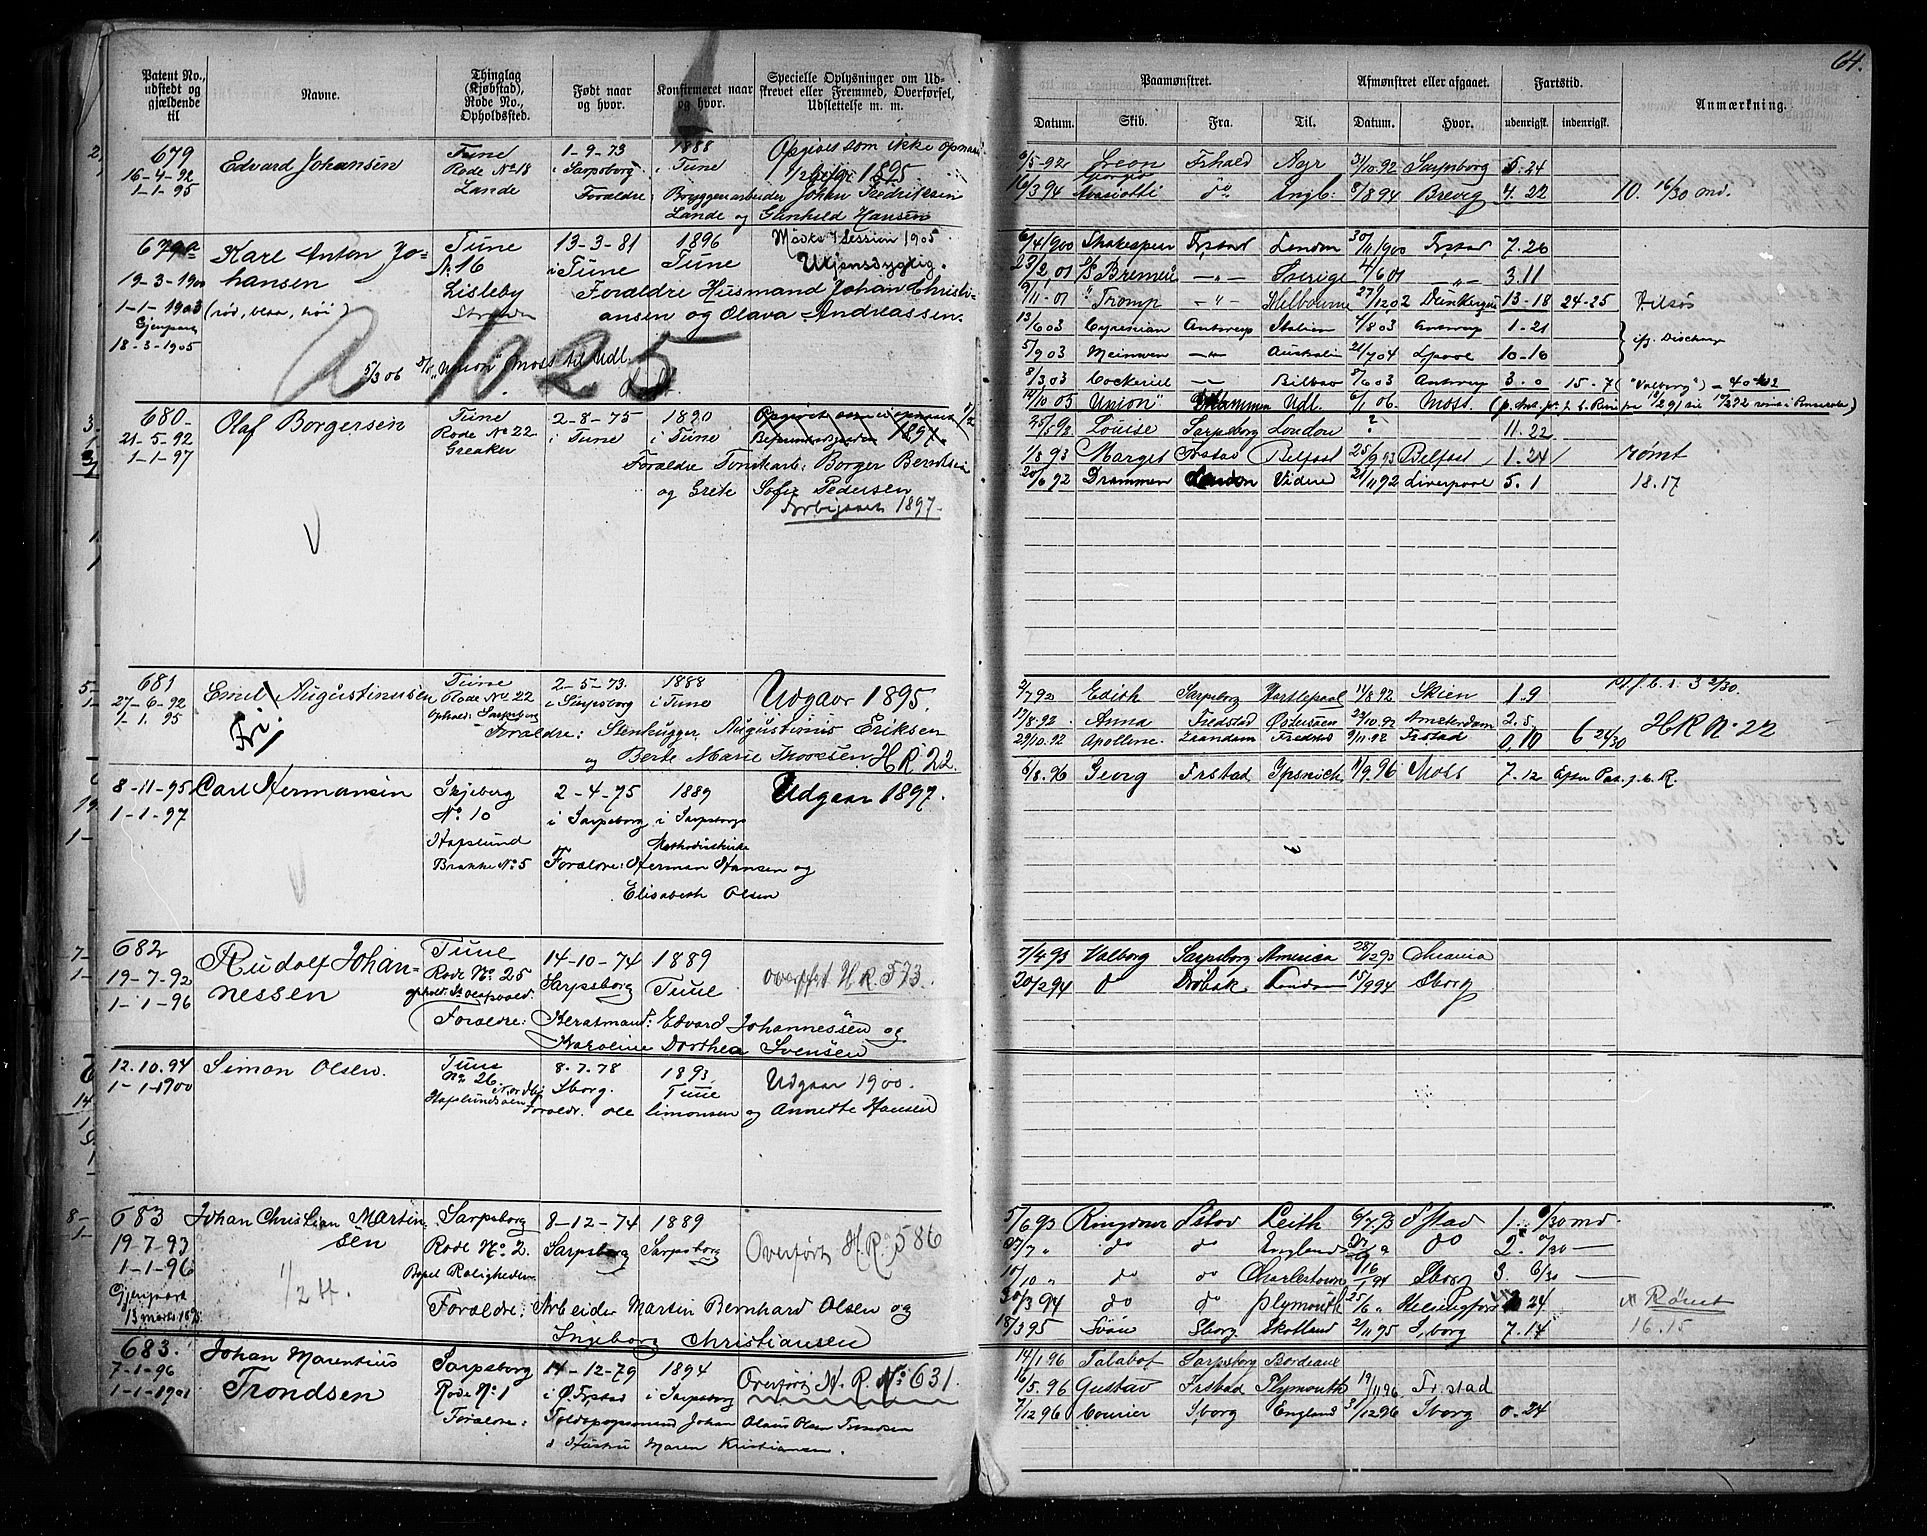 64.
Patent No., udstedt og gjældende til
Navne.
Thinglag (Kjøbstad), Rode No., Opholdssted.
Født naar og hvor.
Konfirmeret naar og hvor.
Specielle Oplysninger om Udskrevet eller Fremmed, Overførsel, Udslettelse m. m.
Paamønstret.
Afmønstret eller afgaaet.
Fartstid.
Anmærkning.
Datum. Skib. Fra. Til. Datum. Hvor. udenrigsk. indenrigsk.
679
16-4-92
1-1-95
Edvard Johansen
Tune
Rode No 18
Lande
1-9-73
i Sarpsborg
1888
i Tune
Opgives som ikke
1895
Forældre: Bryggeriarbeider Johan Fredriksen
Lande og Gunhild Hansen
6/5-92 Freon Frhald Ayr 31/10.92 Sarpsborg 5.24
16/3 94 do Engl: 8/8 94 Brevig 4.22 10. 16/30 md.
19-3-1900
1-1-1903
Gjenpart
18-3-1905
Karl Anton Johansen
(rød, blaa, høi)
Tune
No 16
Lisleby
Stranden
13-3-81
i Tune
1896
Tune
Mødte i Session 1905
Utjensdygtig.
Forældre Husmand Johan Christiansen og Olava Andreassen.
A 1025
5/3 06 "Union" Moss til Udl.
6/4 1900 Shakespear Frstad London 30/11 1900 Frstad 7.26
23/2 01 Bremen -"- Sverige 4/6 01 " 3.11
6/11-01 Tromp -"- Melbourne 27/12 02 Dunkerque 13-18 24-25
13/6 03 Cyrenian Antwerp Italien 4/8 03 Antwerp 1-21
5/9 03 Meinwen -"- Australien 21/7 04 Lpool 10-16
8/3 03 Cockeril -"- Bilbao 8/6 03 Antwerp 3.0 15-7 ("Valborg")
14/10 05 Union" Drammen Udl. 6/1 06 Moss
680
21-5-92
1-1-97
Olaf Borgersen
Tune
Rode No 22
Greaker
2-8-75
i Tune
1890
i Tune
1897
Forældre Tomtkarl: Borger Berntsen
og Grete Sofie Pedersen
Forbigaaet 1897
25/5 92 Louise Sarpsborg London ? 11.22
1/8 93 Margit Frstad Belfast 25/9 93 Belfast 1.24 rømt
20/6 92 Drammen London Videre 21/11 92 Liverpool 5.1 18.17
681
27-6-92
1-1.95
Emil Augustinusen
Fri!
Tune
Rode No 22
Ophold: Sarpsborg
2-5-73.
i Sarpsborg
1888
i Tune
Udgaar 1895.
Forældre: Stenhugger Augustinus Eriksen
og Berte Marie Thoresen H R 22
2/7 92 Edith Sarpsborg Hartlepool 14/8 92 Skien 1.9
17/8.92 Anna Fredstad Østersøen 22/10.92 Amsterdam 2.5
29/10.92 Apollene Zaandam Fredstad 9/11.92 Frstad 0.10 6 24/30 H R No 22
8-11-95
1-1-97
Carl Hermansen
Skjeberg
No 10
Hafslund
Brakke No 5
2-4-75
i Sarpsborg
1889
i Sarpsborgs
Methodistkirke
Udgaar 1897.
Forældre: Herman Hansen og
Elisabeth Olsen
6/8.96 Georg Frstad Ipsvich 11/9.96 Moss 7.12
682
19-7-92
1-1-96
Rudolf Johannessen
Tune
Rode No 25
14-10-74
Sarpsborg
1889
Tune
overført H R. 573.
Forældre: Kjøratmand: Edvard Johannessen og
Karoline Dorthea Svensen
7/4 93 Valborg Sarpsborg America 28/12 93 Chrania
20/2 94 do Drøbak London 15/9 94 Sborg
12.10.94
1-1-1900
Simon Olsen.
Tune
No. 26.
8.7.78
Sborg.
1893
Tune
Udgaar 1900.
Forældr. Ole Simonsen og Annette Hansen
683
19-7-93
1-1-96
Gjenpart
13 marts 1895
Johan Christian Martinsen
1/2 H.
Sarpsborg
Rode No 2.
Bopel Roligheden
8-12-74
Sarpsborg
1889
Sarpsborg
Overført H. R. 586
Forældre: Arbeider Martin Bernhard Olsen og
Ingeborg Christiansen
5/6 93 Ringdove Fstad Leith 6/7.93 Fstad
27/7 " do do England do
10/10 " do do Charlestown 16/1 94 Sborg 3. 6/30
30/3 94 do do Plymouth 25/6 " Helsingfors 24 Rømt
18/3 95 Svan Sborg. Skotland 2/11 95 Sborg 7.14 16.15
683.
7-1-96
1-1-1901
Johan Marentius Trondsen
Sarpsborg
Rode No 1
14-12-79
i Ø. Frstad
1894
i Sarpsborg
Overført H. R. No: 631.
Forældre: Toldopsynsmand Johan Olaus Olsen Trondsen
& Hustru Maren Kristiansen.
14/1 96 Talabot Sarpsborg Bordeaux
16/5.96 Gustav Frstad Plymouth 19/11 96 Fr.stad
7/12 96 Courier Sborg England 31/12 96 Sborg 0.24